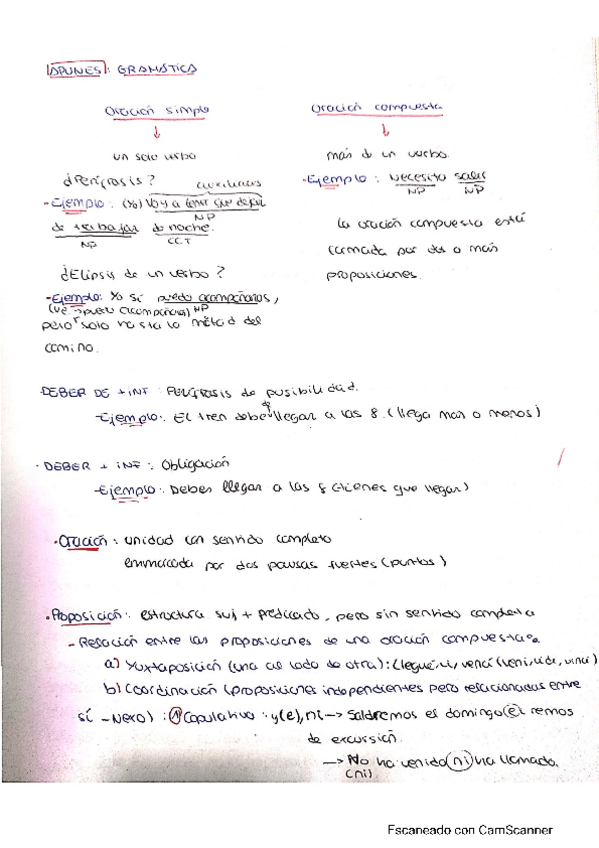 APUNES: GRAMÁTICA
Oración simple
un solo verbo
¿Perífrasis? auxiliares
- Ejemplo: (Yo) Voy a tener que dejar NP
de trabajar de noche.
NP CCT
¿Elipsis de un verbo?
- Ejemplo: Yo sí puedo acompañaros,
(VE → puedo acompañaros) NP
pero solo hasta la mitad del
camino.
Oración compuesta
más de un verbo.
- Ejemplo: Necesito salir
NP NP
La oración compuesta está
formada por dos o más
proposiciones.
DEBER DE + INF: Perífrasis de posibilidad.
- Ejemplo: El tren debe de llegar a las 8. (llega mas o menos)
· DEBER + INF: Obligación
- Ejemplo: Debes llegar a las 8 (tienes que llegar)
· Oración: unidad con sentido completo
enmarcada por dos pausas fuertes (puntos)
· Proposición: estructura suj + predicado, pero sin sentido completo
- Relación entre las proposiciones de una oración compuesta:
a) Yuxtaposición (una al lado de otra): (llegué, vi, vencí (veni, vidi, vinci)
b) Coordinación (proposiciones independientes pero relacionadas entre
sí - Nexo): 1) Copulativa: y(e), ni → Saldremos el domingo (e) iremos
de excursión.
→ No ha venido (ni) ha llamado.
(ni)
Escaneado con CamScanner